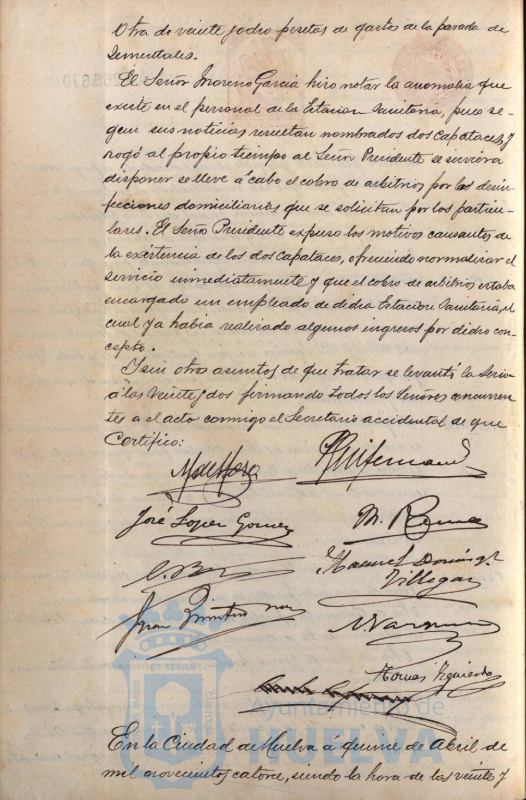 Otra de veinte y ocho pesetas de gastos de la parada de
Sementales.
El Señor Moreno Garcia hizo notar la anomalia que
existe en el personal de la Estacion Sanitaria, pues se-
gun sus noticias resultan nombrados dos Capataces, y
rogó al propio tiempo al Señor Presidente se sirviera
disponer se lleve á cabo el cobro de arbitrios por las desin-
fecciones domiciliarias que se solicitan por los particu-
lares. El Señor Presidente expuso los motivos causantes de
la existencia de los dos Capataces, ofreciendo normalizar el
servicio inmediatamente y que el cobro de arbitrios estaba
encargado un empleado de dicha Estacion Sanitaria, el
cual ya habia realizado algunos ingresos por dicho con-
cepto.
Y sin otros asuntos de que tratar se levantó la Sesion
á las veinte y dos firmando todos los Señores concurren-
tes a el acto conmigo el Secretario accidental de que
Certifico:
José Lopez Gomez
Manuel Domingz
Villegas
Tomas Izquierdo
PORTUS MARIS ET TERRAE CUSTODIA
Ayuntamiento de
HUELVA
En la Ciudad de Huelva á quince de Abril de
mil novecientos catorce, siendo la hora de las veinte y